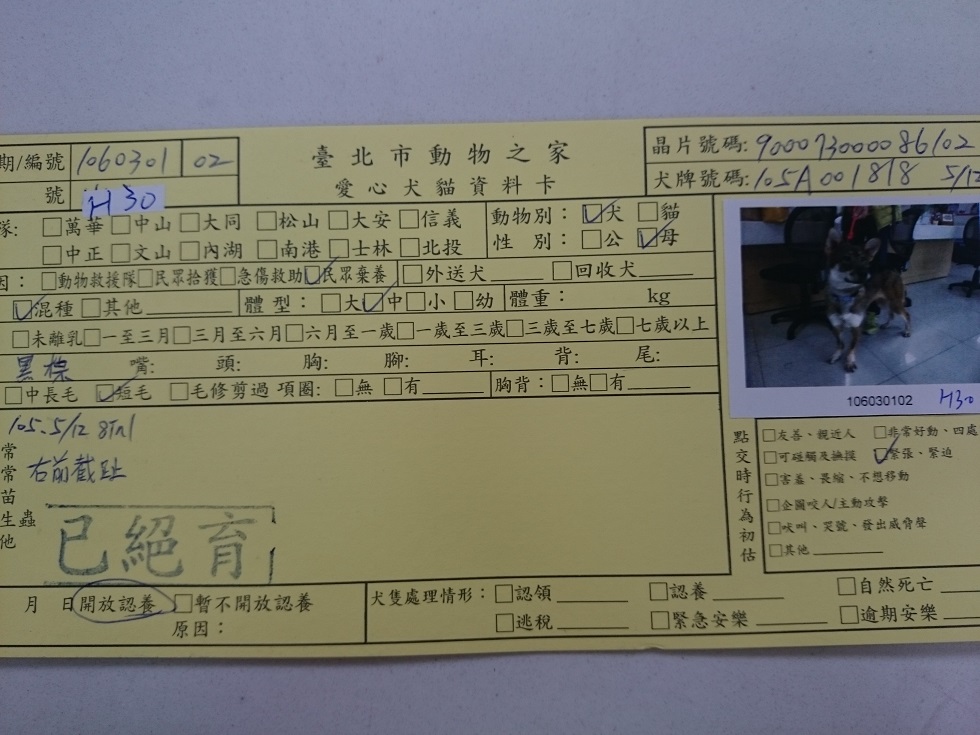 臺北市動物之家
愛心犬貓資料卡
期/編號 1060301 02
號 H30
晶片號碼: 900073000086102
犬牌號碼: 105A001818 5/12
隊: □萬華 □中山 □大同 □松山 □大安 □信義
□中正 □文山 □內湖 □南港 □士林 □北投
動物別: ☑犬 □貓
性別: □公 ☑母
因: □動物救援隊 □民眾拾獲 □急傷救助 ☑民眾棄養 □外送犬 □回收犬
☑混種 □其他 體型: □大 ☑中 □小 □幼 體重: kg
□未離乳 □一至三月 □三月至六月 □六月至一歲 □一歲至三歲 □三歲至七歲 □七歲以上
黑棕 嘴: 頭: 胸: 腳: 耳: 背: 尾:
□中長毛 ☑短毛 □毛修剪過 項圈: □無 □有 胸背: □無 □有
105. 5/12
常
常 右前截趾
苗
生蟲
他
已絕育
106030102 H30
點交時行為初估
□友善、親近人 □非常好動、四處
□可碰觸及撫摸 ☑緊張、緊迫
□害羞、畏縮、不想移動
□企圖咬人/主動攻擊
□吠叫、哭號、發出威脅聲
□其他
月 日 開放認養 □暫不開放認養
原因:
犬隻處理情形: □認領 □認養 □自然死亡
□逃稅 □緊急安樂 □逾期安樂